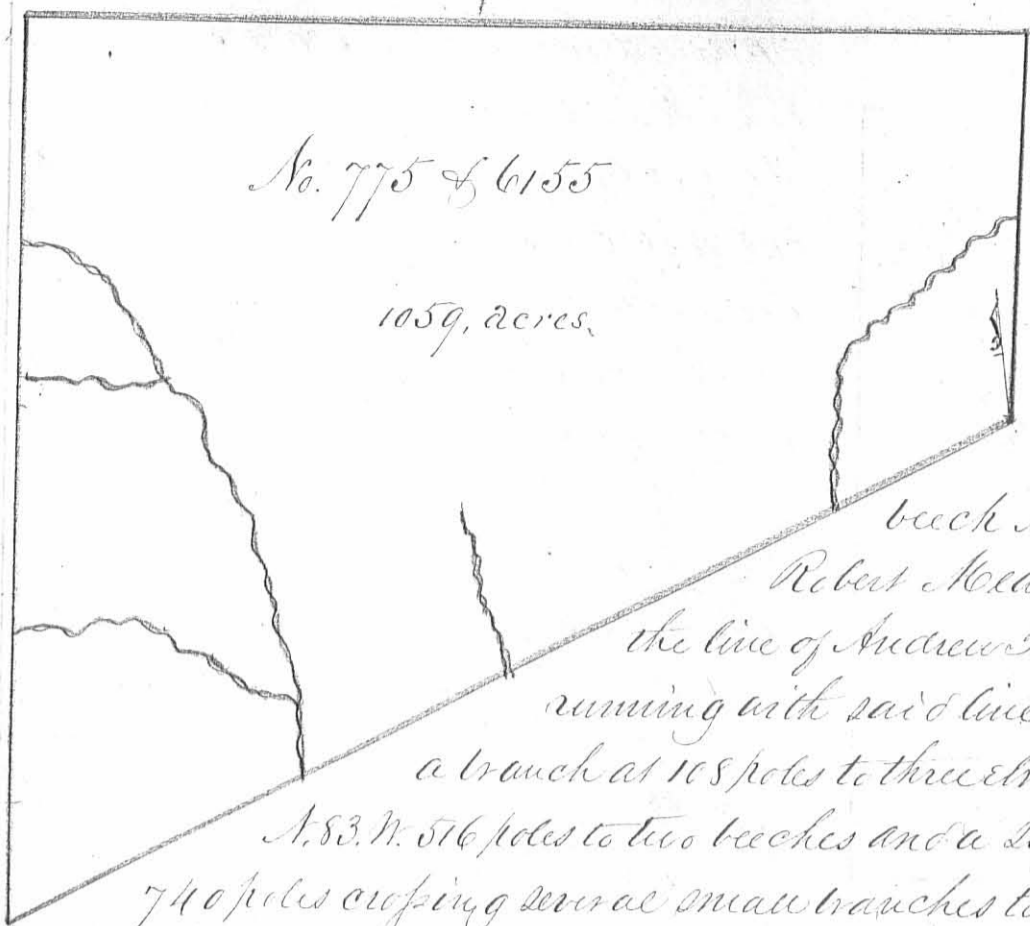 No. 775 & 6155
1059, acres.
beech
Robert
the line of Andrew
running with said line
a branch at 108 poles to three
N. 83. W. 516 poles to two beeches and a
740 poles crossing several small branches to